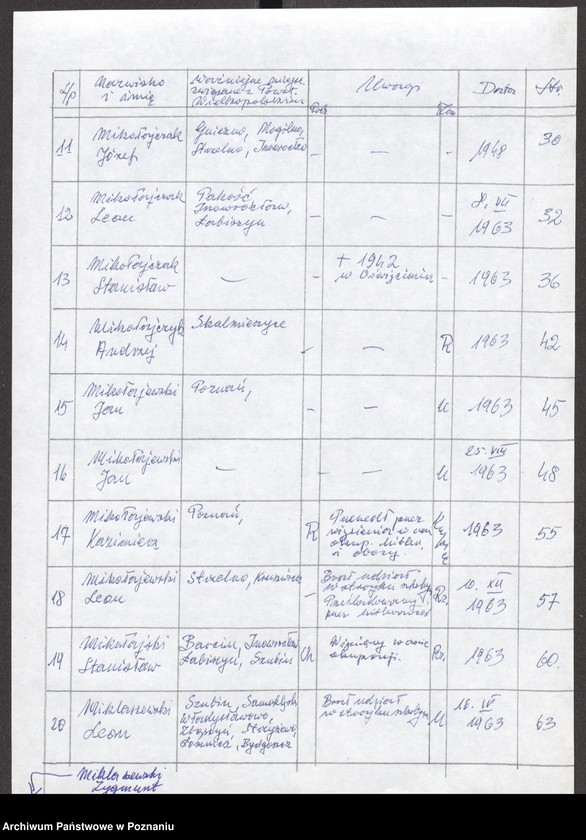 L/p Nazwisko i imię Ważniejsze miejsc. związane z Powst. Wielkopolskim Uwagi Data Str.
11 Mikołajczak Józef Gniezno, Mogilno, Strzelno, Inowrocław – — - 1948 30
12 Mikołajczak Leon Pakość Inowrocław, Łabiszyn – — – 8. VII 1963 32
13 Mikołajczak Stanisław — - + 1942 w Oświęcimiu - 1963 36
14 Mikołajczyk Andrzej Skalmierzyce - — R 1963 42
15 Mikołajewski Jan Poznań, - — U 1963 45
16 Mikołajewski Jan — - — U 25. VIII 1963 48
17 Mikołajewski Kazimierz Poznań, R Przeszedł przez więzienia i obozy. 1963 55
18 Mikołajewski Leon Strzelno, Kruszwica – Brał udział w strajku szkoln. Rz. 10. XII 1963 57
19 Stanisław Barcin, Inowrocław Łabiszyn, Szubin Ch Więziony w czasie okupacji. 1963 60.
20 Miklaszewski Leon Szubin, Władysławowo, Zbąszyń, Łomnica, Bydgoszcz Brał udział w strajku szkolnym U 16. IV 1963 63
Miklaszewski
Zygmunt
Archiwum Państwowe w Poznaniu